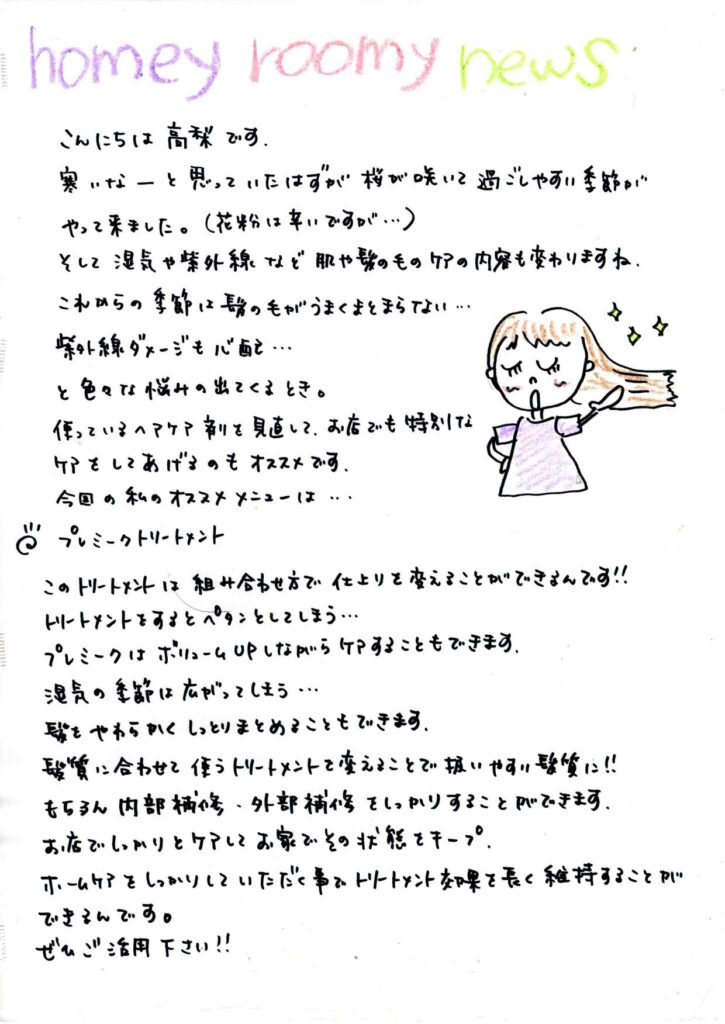 homey roomy news
こんにちは 高梨です.
寒いなーと思っていたはずが 桜が咲いて 過ごしやすい季節が
やって来ました。(花粉は辛いですが…)
そして 湿気や紫外線など 肌や髪のものケアの内容も変わりますね.
これからの季節は髪の毛がうまくまとまらない…
紫外線ダメージも心配…
と色々な悩みの出てくるとき。
使っているヘアケア剤を見直して、お店でも特別な
ケアをしてあげるのもオススメです.
今回の私のオススメメニューは…
プレミークトリートメント
このトリートメントは 組み合わせ方で 仕上りを変えることができるんです!!
トリートメントをするとペタンとしてしまう…
プレミークは ボリュームUPしながらケアすることもできます.
湿気の季節は広がってしまう…
髪をやわらかくしっとりまとめることもできます.
髪質に合わせて使うトリートメントで変えることで扱いやすい髪質に!!
もちろん内部補修・外部補修をしっかりすることができます.
お店でしっかりとケアしてお家でその状態をキープ.
ホームケアをしっかりしていただく事でトリートメント効果を長く維持することが
できるんです。
ぜひご活用下さい!!